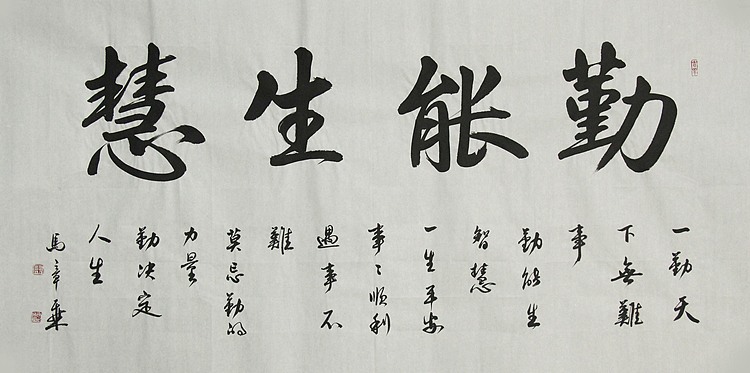 勤能生慧
一勤天
下無難
事
勤能生
智慧
一生平安
事々順利
遇事不
難
莫忘勤的
力量
勤决定
人生
馬章乘